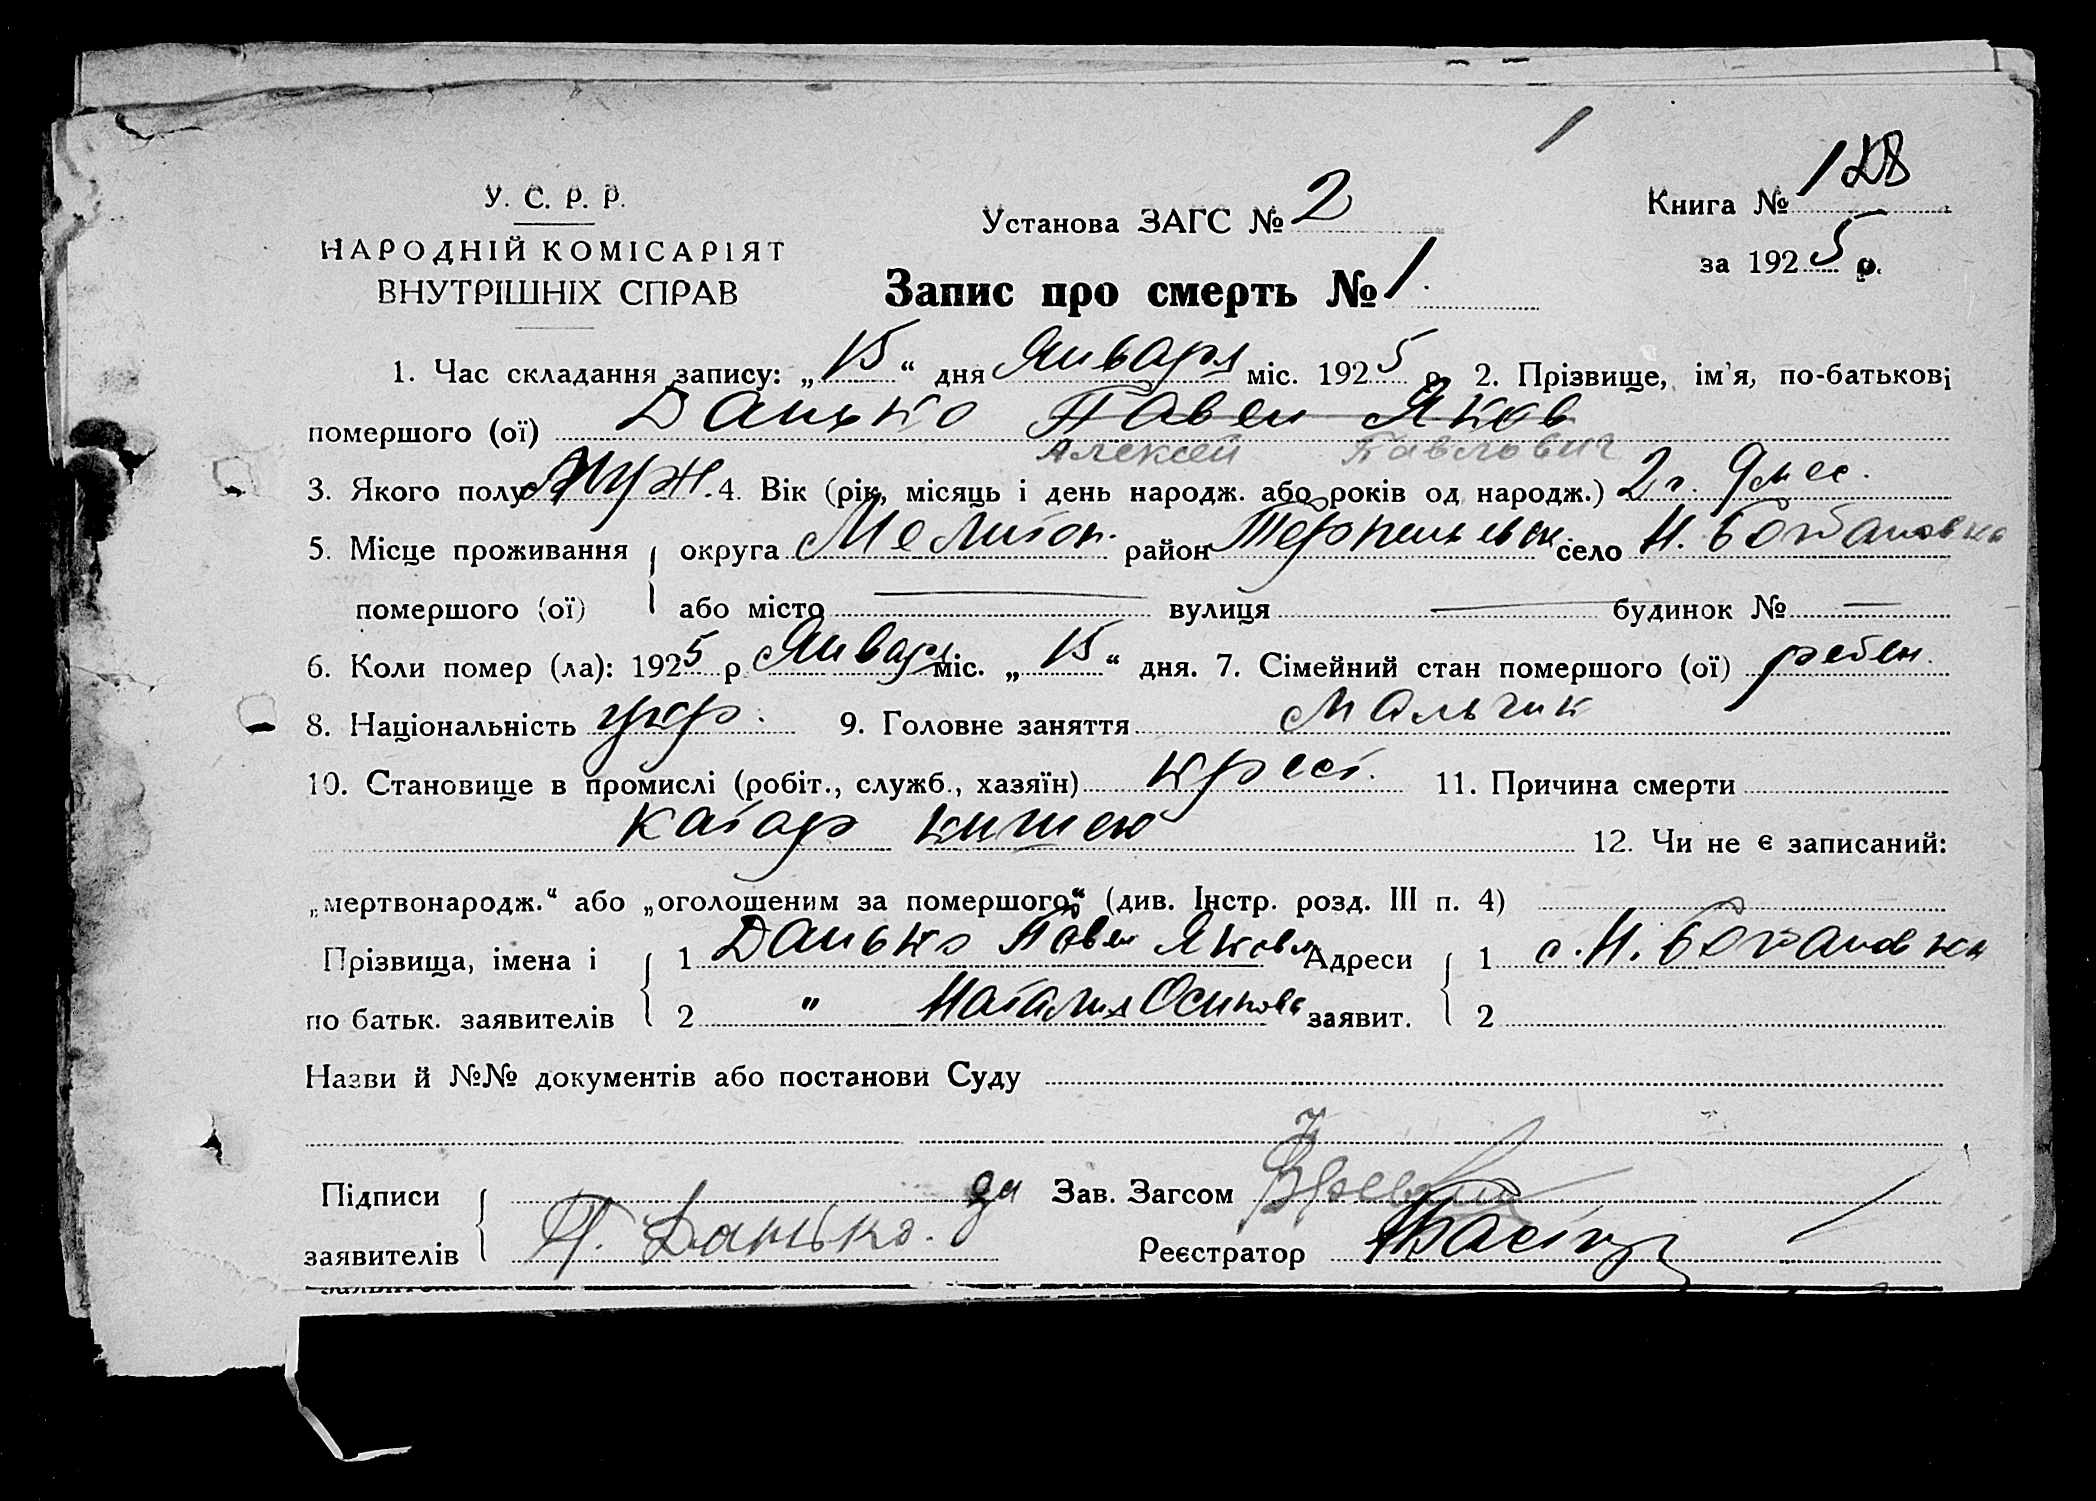 1
У. С. Р. Р.
НАРОДНІЙ КОМІСАРІЯТ
ВНУТРІШНІХ СПРАВ
Установа ЗАГС № 2
Книга № 128
за 1925 р.
Запис про смерть № 1.
1. Час складання запису: „15“ дня Января міс. 1925 р. 2. Прізвище, ім'я, по-батькові
помершого (ої) Данько Павел Яков
Алексей Павлович
3. Якого полу Муж. 4. Вік (рік, місяць і день народж. або років од народж.) 2 г. 9 мес.
5. Місце проживання округа Мелитоп. район Терпеньевск. село Н. Богдановка
помершого (ої) або місто — вулиця — будинок № —
6. Коли помер (ла): 1925 р. Января міс. „15“ дня. 7. Сімейний стан помершого (ої) ребен.
8. Національність укр. 9. Головне заняття мальчик
10. Становище в промислі (робіт., служб., хазяїн) крест. 11. Причина смерти
катар кишек 12. Чи не є записаний:
„мертвонародж.“ або „оголошеним за помершого“ (див. Інстр. розд. III п. 4)
Прізвища, імена і 1 Данько Павел Яковл Адреси 1 с. Н. Богдановка
по батьк. заявителів 2 " Наталия Осипова заявит. 2
Назви й №№ документів або постанови Суду
Підписи Зав. Загсом
заявителів П. Данько. Реєстратор